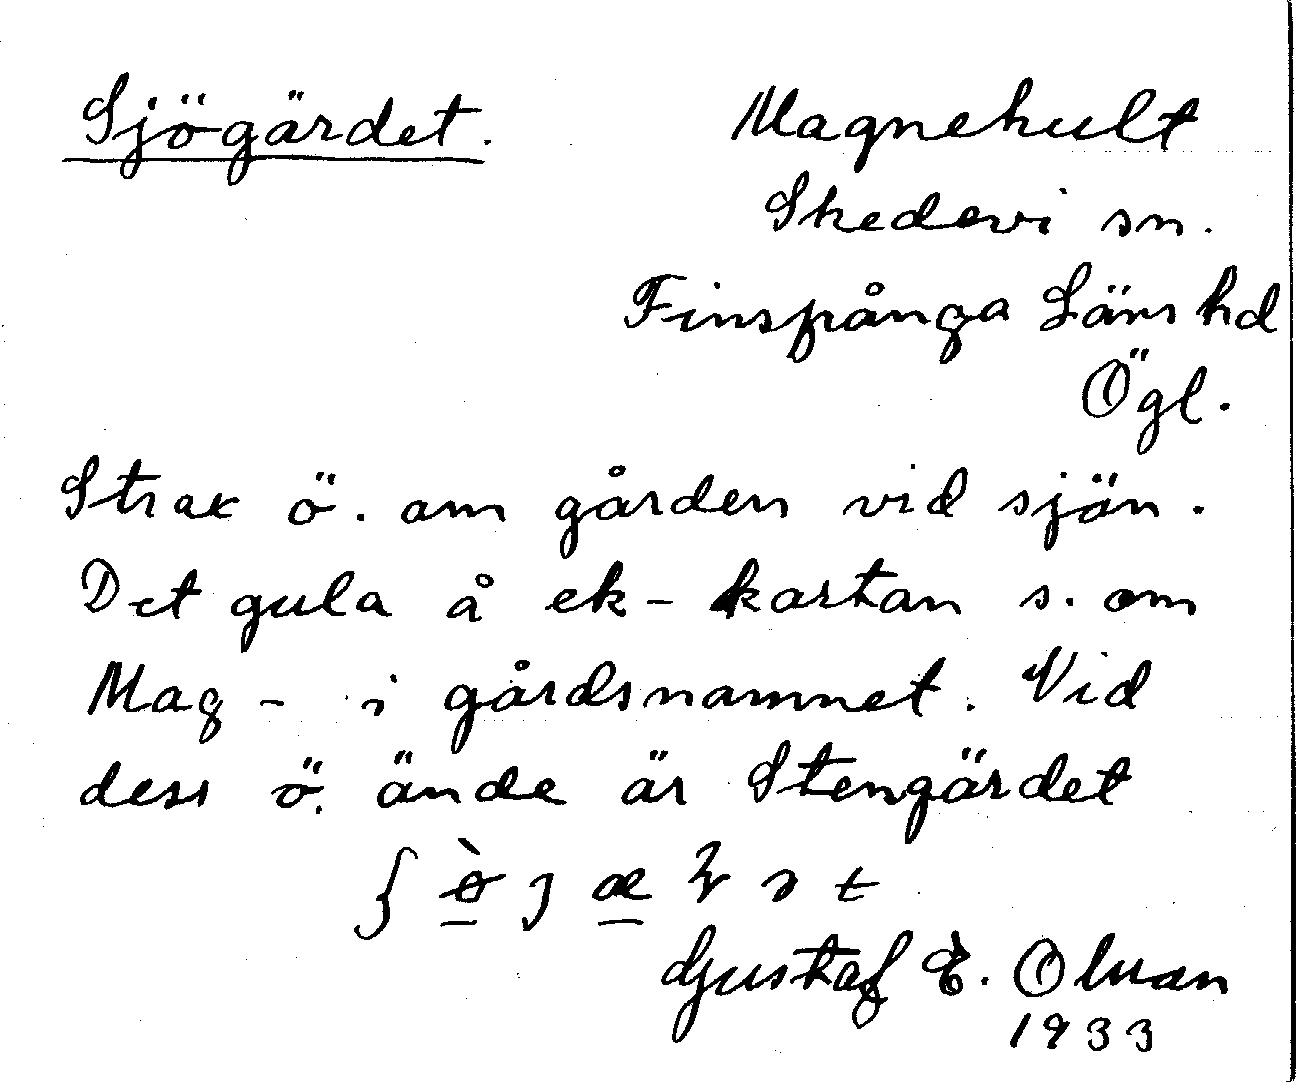 Sjögärdet. Magnehult
Skedevi sn.
Finspånga Läns hd
Ögl.
Strax ö. om gården vid sjön.
Det gula å ek-kartan s. om
Mag- i gårdsnamnet. Vid
dess ö. ände är Stengärdet
Gustaf E.
1933